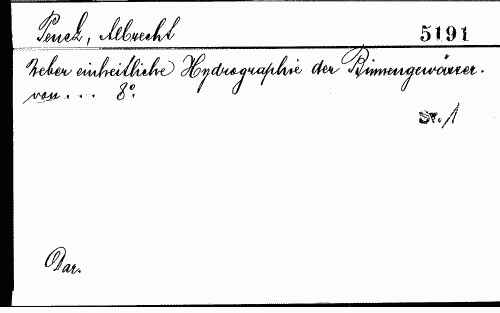 Penck, Albrecht 5191
Ueber einheitliche Hydrographie der Binnengewässer.
von... 8°.
St. 1
Dar.